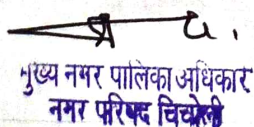 मुख्य नगर पालिका अधिकार
नगर परिषद चिचोली